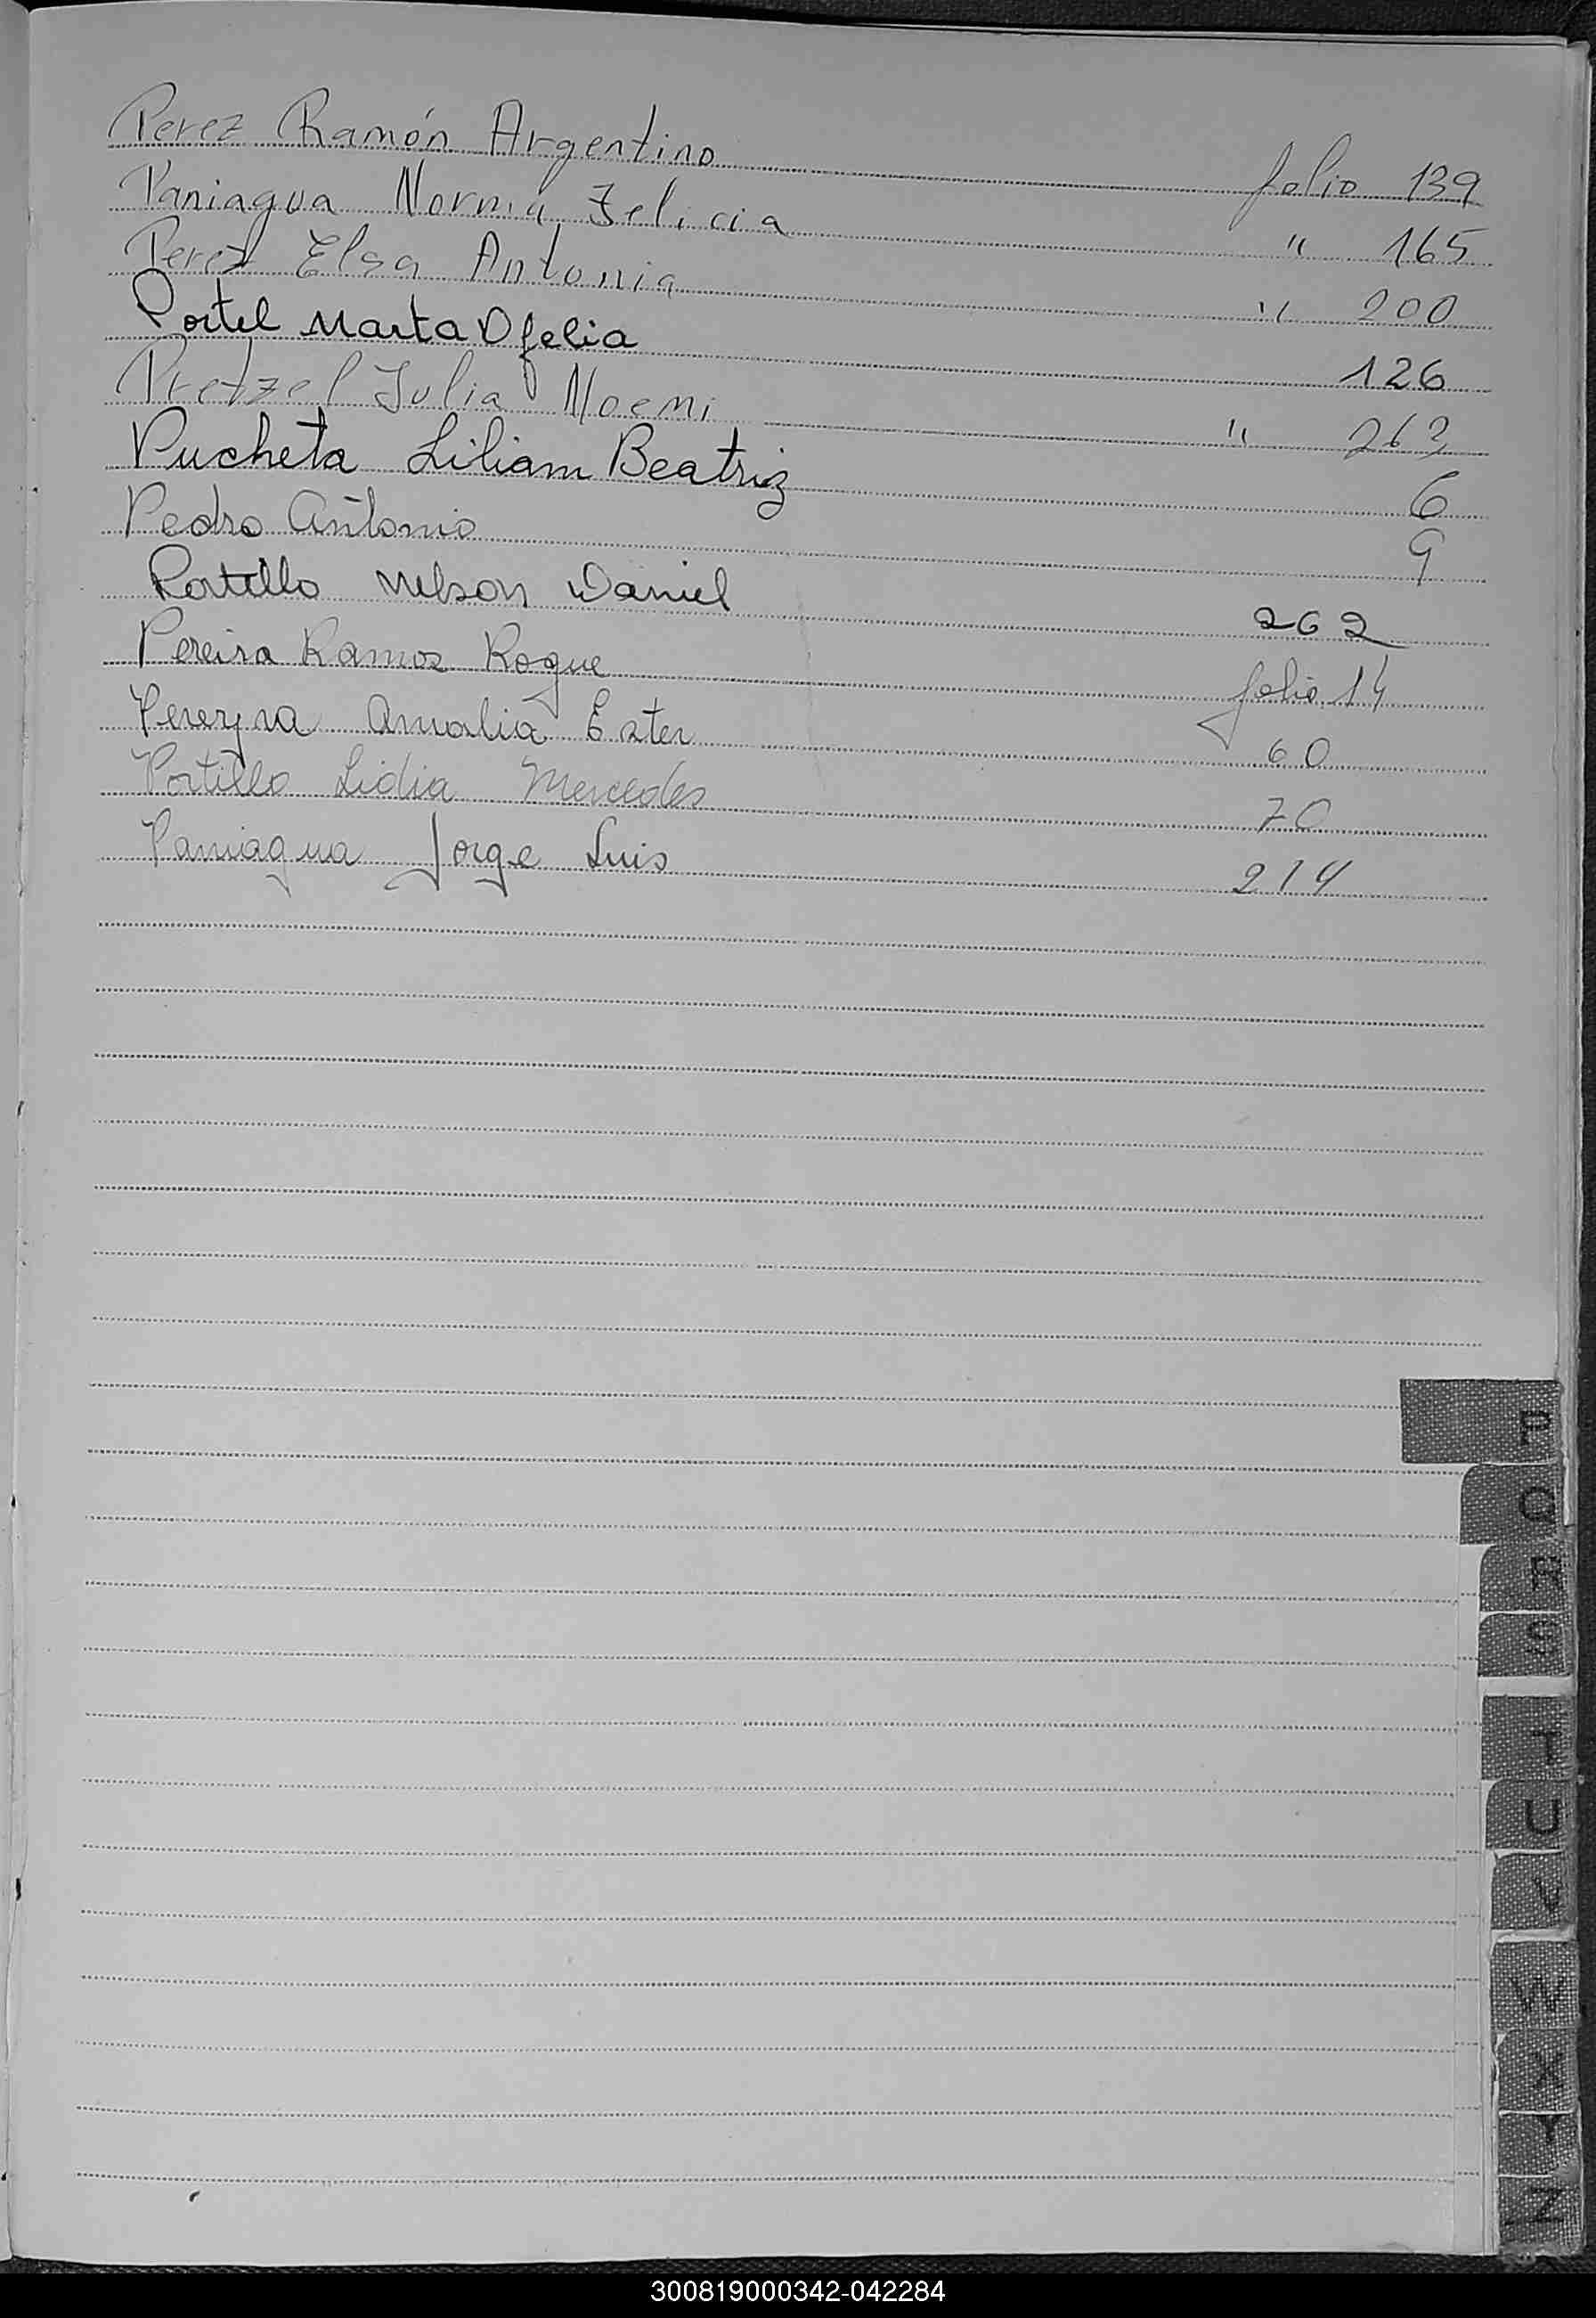 Perez Ramón Argentino folio 139
Paniagua Norma Felicia " 165
Perez Elsa Antonia " 200
Portel Marta Ofelia 126
Pretzel Julia Noemi " 262
Pucheta Liliam Beatriz 6
Pedro Antonio 9
Portillo Nelson Daniel 262
Pereira Ramos Roque folio 14
Pereyra Amalia Ester 60
Portillo Lidia Mercedes 70
Paniagua Jorge Luis 214
P
Q
R
S
T
U
V
W
X
Y
Z
300819000342-042284